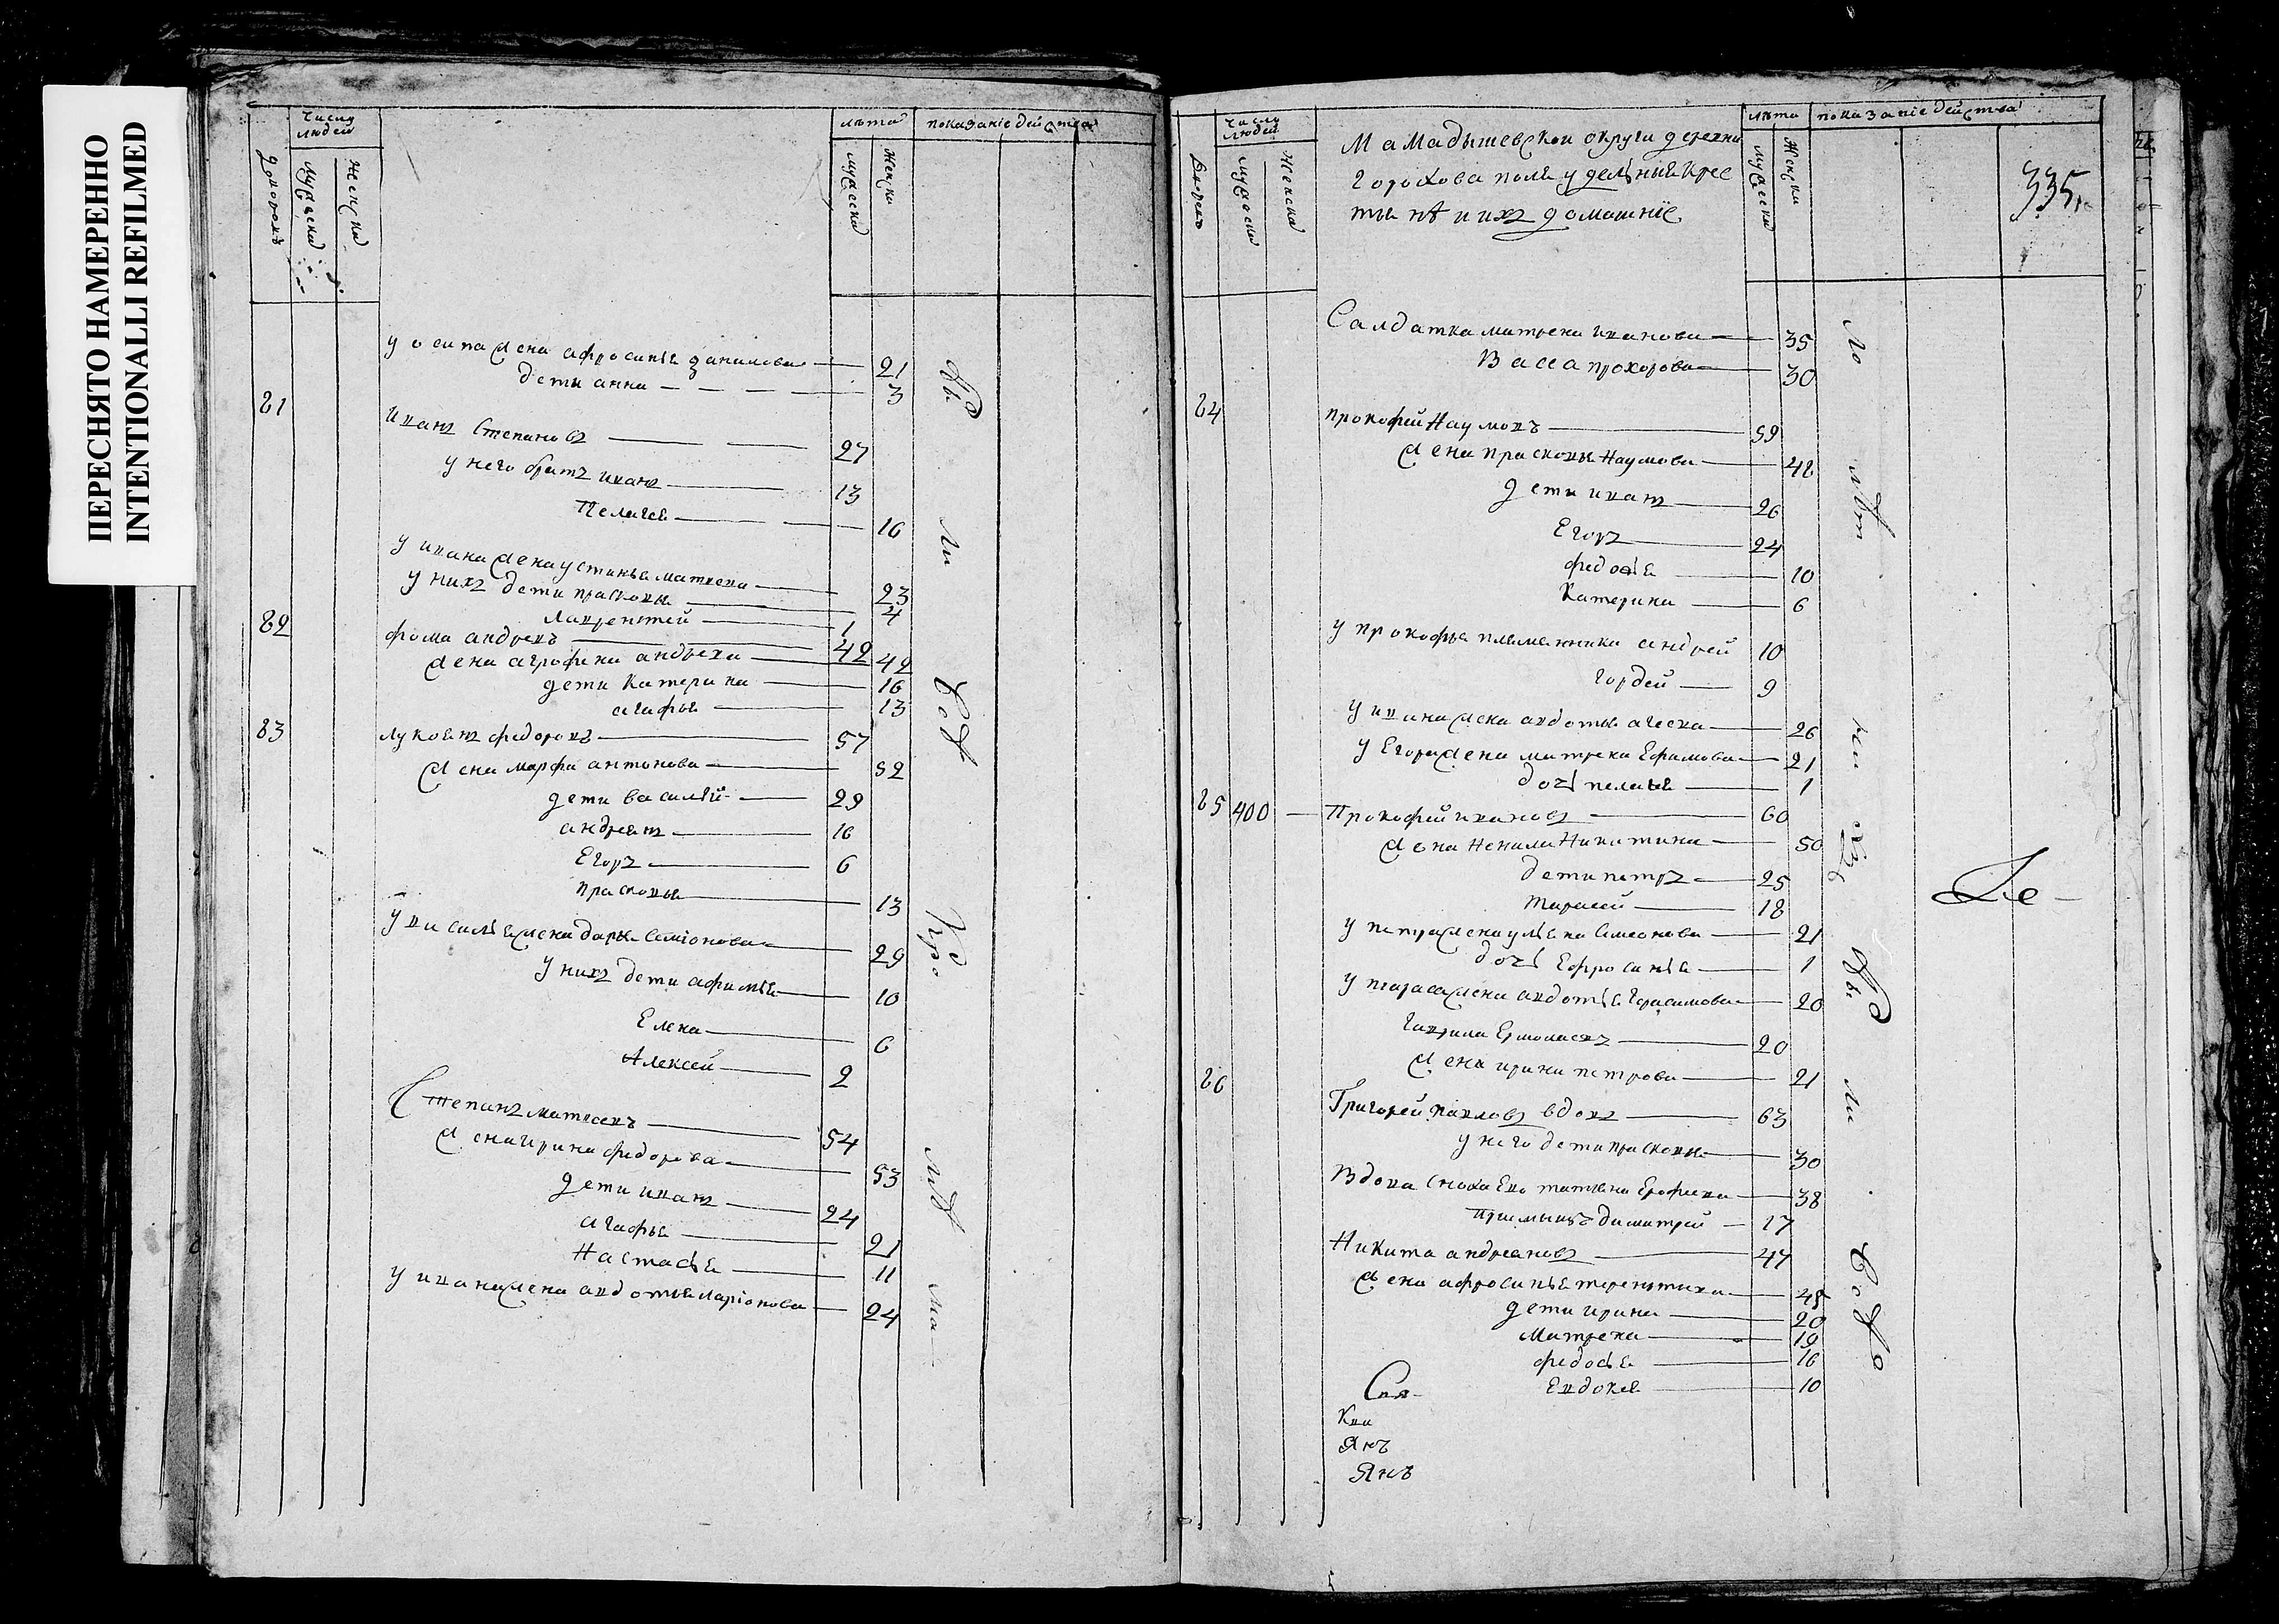 ПЕРЕСНЯТО НАМЕРЕННО
INTENTIONALLI REFILMED
число людей
дворовъ
мужеска
женска
лѣта
мужеска
женска
показаніе действа
у осипа жена афросинья данилова 21
дети анна 3
81
иванъ степановъ 27
у него братъ иванъ 13
Пелагея 16
у ивана жена устинья матвеева 23
у нихъ дети прасковья 4
лаврентей 1
82
фома андреевъ 42
жена аграфена андреева 42
дети катерина 16
агафья 13
83
федоровъ 57
жена марфа антонова 52
дети василей 29
андреянъ 16
Егоръ 6
прасковья 13
у василья жена дарья семіонова 29
у нихъ дети афимья 10
Елена 6
Алексей 2
Степанъ матвеевъ 54
жена ирина федорова 53
дети иванъ 24
агафья 21
настасья 11
у ивана жена авдотья ларіонова 24
число людей
дворовъ
мужеска
женска
Мамадышевской округи деревни
Горохова поля удельныя крес
тьянѣ и ихъ домашніе
лѣта
мужеска
женска
показаніе действа
335
Салдатка матрена иванова 35
Васса прохорова 30
84
прокофей наумовъ 59
жена прасковья наумова 48
дети иванъ 26
Егоръ 24
федосья 10
Катерина 6
у прокофья племянники андрей 10
гордей 9
у ивана жена авдотья 26
у Егора жена матрена Ефимова 21
дочь 1
85 400
Прокофей ивановъ 60
жена ненила никитина 50
дети петръ 25
тарасей 18
у петра жена ульяна симеонова 21
дочь Ефросинья 1
у тараса жена авдотья герасимова 20
гаврила Ермолаевъ 20
жена ирина петрова 21
86
Григорей павловъ вдовъ 63
у него дети прасковья 30
Вдова сноха Ево татьяна Ерофеева 38
приемышъ димитрей 17
Никита андреяновъ 47
жена афросинья терентьева 48
дети ирина 20
матрена 19
федосья 16
Евдокея 10